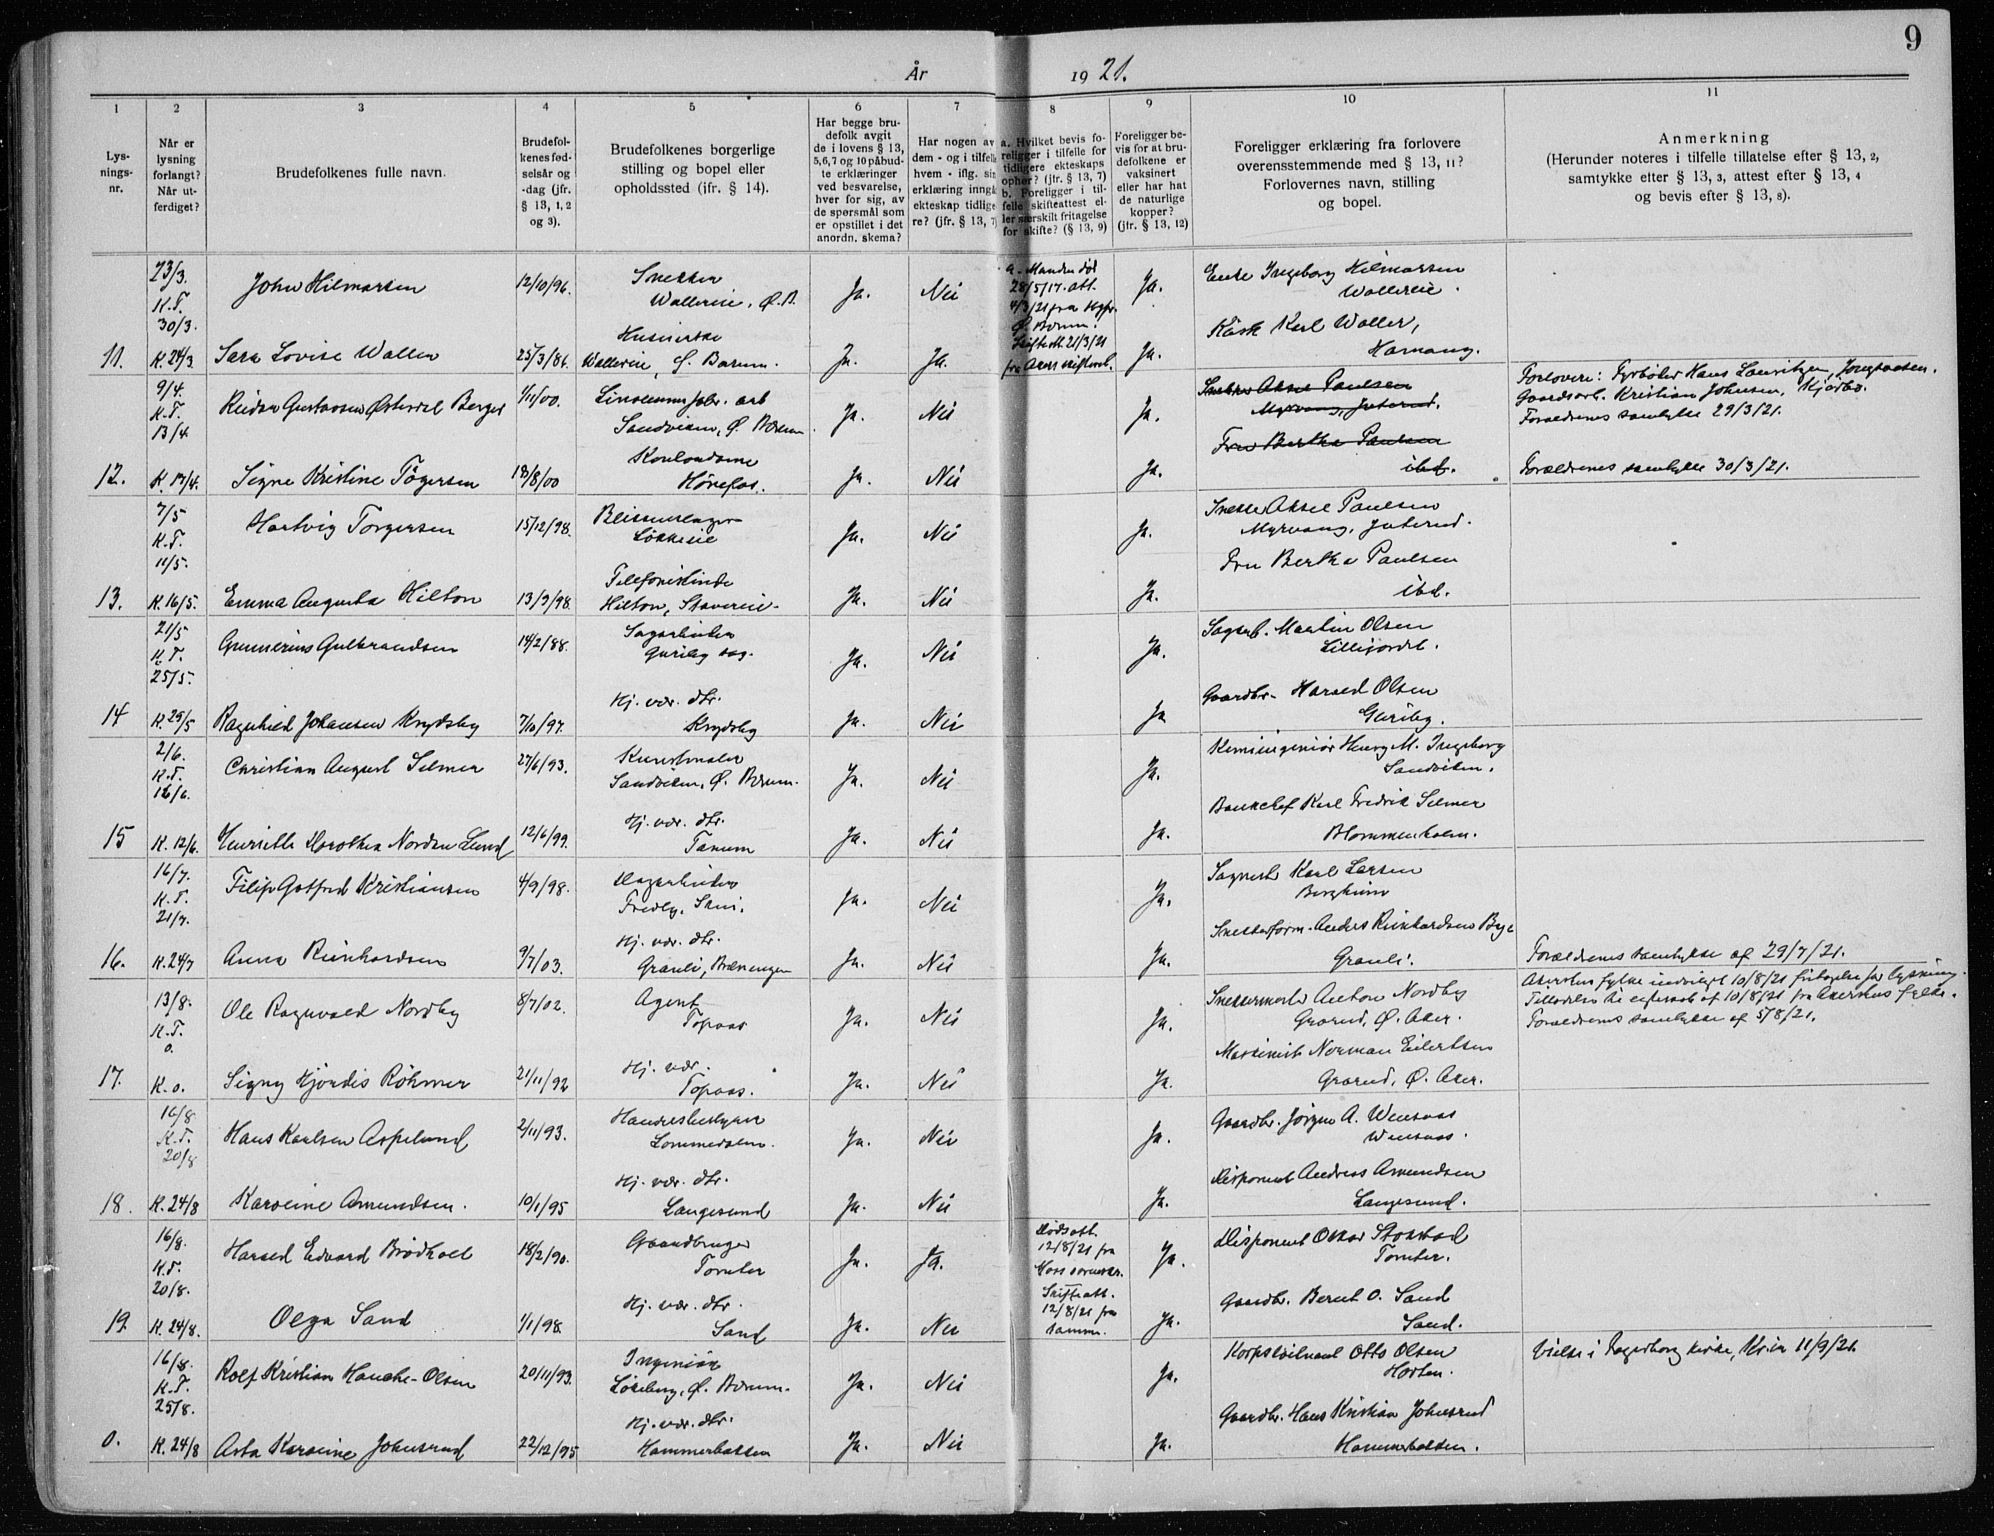 9
År 1921.
1 2 3 4 5 6 7 8 9 10 11
Lys-
nings-
nr.
Når er
lysning
forlangt?
Når ut-
ferdiget?
Brudefolkenes fulle navn.
Brudefol-
kenes fød-
selsår og
-dag (jfr.
§ 13, 1, 2
og 3).
Brudefolkenes borgerlige
stilling og bopel eller
opholdssted (jfr. § 14).
Har begge bru-
defolk avgit
de i lovens § 13,
5,6,7 og 10 påbud-
te erklæringer
ved besvarelse,
hver for sig, av
de spørsmål som
er opstillet i det
anordn. skema?
Har nogen av
dem - og i tilfelle
hvem - iflg. sin
erklæring inngå
ekteskap tidlige
re? (jfr. § 13, 7)
a. Hvilket bevis fo-
religger i tilfelle for
tidligere ekteskaps
ophør? (jfr. § 13, 7)
b. Foreligger i til-
felle skifteattest el-
ler særskilt fritagelse
for skifte? (§ 13, 9)
Foreligger be-
vis for at bru-
defolkene er
vaksinert
eller har hat
de naturlige
kopper?
(jfr. § 13, 12)
Foreligger erklæring fra forlovere
overensstemmende med § 13, 11?
Forlovernes navn, stilling
og bopel.
Anmerkning
(Herunder noteres i tilfelle tillatelse efter § 13, 2,
samtykke efter § 13, 3, attest efter § 13, 4
og bevis efter § 13, 8).
23/3.
K.T.
30/3.
John Hilmarsen 12/10/96.
Snekker
Wallereie, Ø.B.
Ja. Nei
a. Manden død
28/5/17. att.
4/3/21 fra
Ø. Bærum.
Skifteatt. 21/3/21
fra Akers skifteret.
Ja.
Enke Ingeborg Hilmarsen
Wallereie.
11. K. 24/3. Sara Lovise Waller 25/3/86.
Husmorske
Wallereie, Ø. Bærum.
Ja. Ja. Ja.
Karl Waller,
Hamang.
9/4.
K.T.
13/4.
Reidar Gustavsen Østerdal Berger 1/11/00.
Linoleumsfabr. arb
Sandviken, Ø. Bærum.
Ja. Nei Ja.
Snekker Aksel Paulsen
Myrvang, Juterud.
Forlovere: Fyrbøter Hans Lauritzen, Jongsaasen.
Gaardsarb. Kristian Johnsen, Kjørbo.
Foraeldrenes samtykke 29/3/21.
12. K. 17/4. Signe Kristine Tøgersen 18/8/00
Kontordame
Hønefos.
Ja. Nei Ja.
Fru Bertha Paulsen
ibd.
Foraeldrenes samtykke 30/3/21.
7/5
K.T.
11/5.
Hartvig Torgersen 15/12/98.
Løkkeeie
Ja. Nei Ja.
Snekker Aksel Paulsen
Myrvang, Juterud.
13. K. 16/5. Emma Augusta Hilton 13/9/98.
Telefonistinde
Hilton, Stavereie.
Ja. Nei Ja.
Fru Bertha Paulsen
ibd.
21/5
K.T.
25/5.
Gunnerius Gulbrandsen 14/2/88.
Sagarbeider
Guriby sag.
Ja. Nei Ja.
Sagarb. Martin Olsen
Lillijordet.
14 K. 29/5 Ragnhild Johansen Krydsby 7/10/97.
Hj. vær. dtr.
Krydsby
Ja. Nei Ja
Gaardbr. Harald Olsen
Guriby.
2/6.
K.T.
12/6.
Christian August Selmer 27/6/93.
Kunstmaler
Sandviken, Ø. Bærum.
Ja. Nei Ja.
Kemiingeniør Henry M. Ingeborg
Sandviken.
15 K. 12/6. Henriette Dorothea Nordan Lund 12/6/99.
Hj. vær. dtr.
Tanum
Ja. Nei Ja.
Bankchef Karl Fredrik Selmer
Blommenholm.
16/7.
K.T.
21/7.
Filip Gotfred Kristiansen 4/9/98.
Dagarbeider
Fredly,
Ja. Nei Ja.
Karl Larsen
Bergheim
16. K. 24/7 Anna Reinhardsen 9/7/03.
Hj. vær. dtr.
Granli, Bærumengen
Ja. Nei Ja.
Snekkerform. Anders Reinhardsen Bye
Granli.
Foraeldrenes samtykke af 29/7/21.
13/8.
K.T.
0.
Ole Ragnvald Nordby 8/7/02.
Agent
Topaas
Ja. Nei Ja.
Snekkermester Anton Nordby
Grorud, Ø. Aker.
Akershus fylke indvilget 10/8/21 fritagelse for lysning.
Tilladelse til egteskab af 10/8/21 fra Akershus fylke.
Foraeldrenes samtykke af 5/8/21.
17. K. 0. Signy Hjördis Röhmer 21/11/92
Hj. vær.
Topaas.
Ja. Nei Ja.
Maskinist Norman Eilertsen
Grorud, Ø. Aker.
16/8
K.T.
20/8
Hans Karlsen Aspelund 2/11/93.
Handelsbestyrer
Lommedalen.
Ja. Nei Ja.
Gaardbr. Jørgen A. Wensaas
Wensaas.
18. K. 24/8 Karoline Amundsen. 10/1/95
Hj. vær. dtr.
Langesund
Ja. Nei Ja.
Disponent Andreas Amundsen
Langesund.
16/8.
K.T.
20/8.
Harald Edvard Brødholt 18/2/90.
Gaardbruger
Tomter
Ja. Ja.
Dødsatt.
12/8/21 fra
Moss sorenskr.
Skifteatt.
12/8/21 fra
samme.
Ja.
Disponent Oskar Stokstad
Tomter.
19. K. 24/8. Olga Sand 1/1/98.
Hj. vær. dtr.
Sand
Ja. Nei Ja.
Gaardbr. Bernt O. Sand
Sand.
16/8.
K.T.
25/8.
Rolf Kristian Hauche-Olsen 20/11/93.
Ingeniør
Løkeberg, Ø. Bærum.
Ja. Nei Ja.
Korpsløitnant Otto Olsen
Horten.
Vielse i Fagerborg kirke, Kr.ia 11/9/21.
0. K. 24/8 Asta Karoline Johnsrud 22/12/95
Hj. vær. dtr.
Hammerbakken
Ja. Nei Ja.
Gaardbr. Hans Kristian Johnsrud
Hammerbakken.